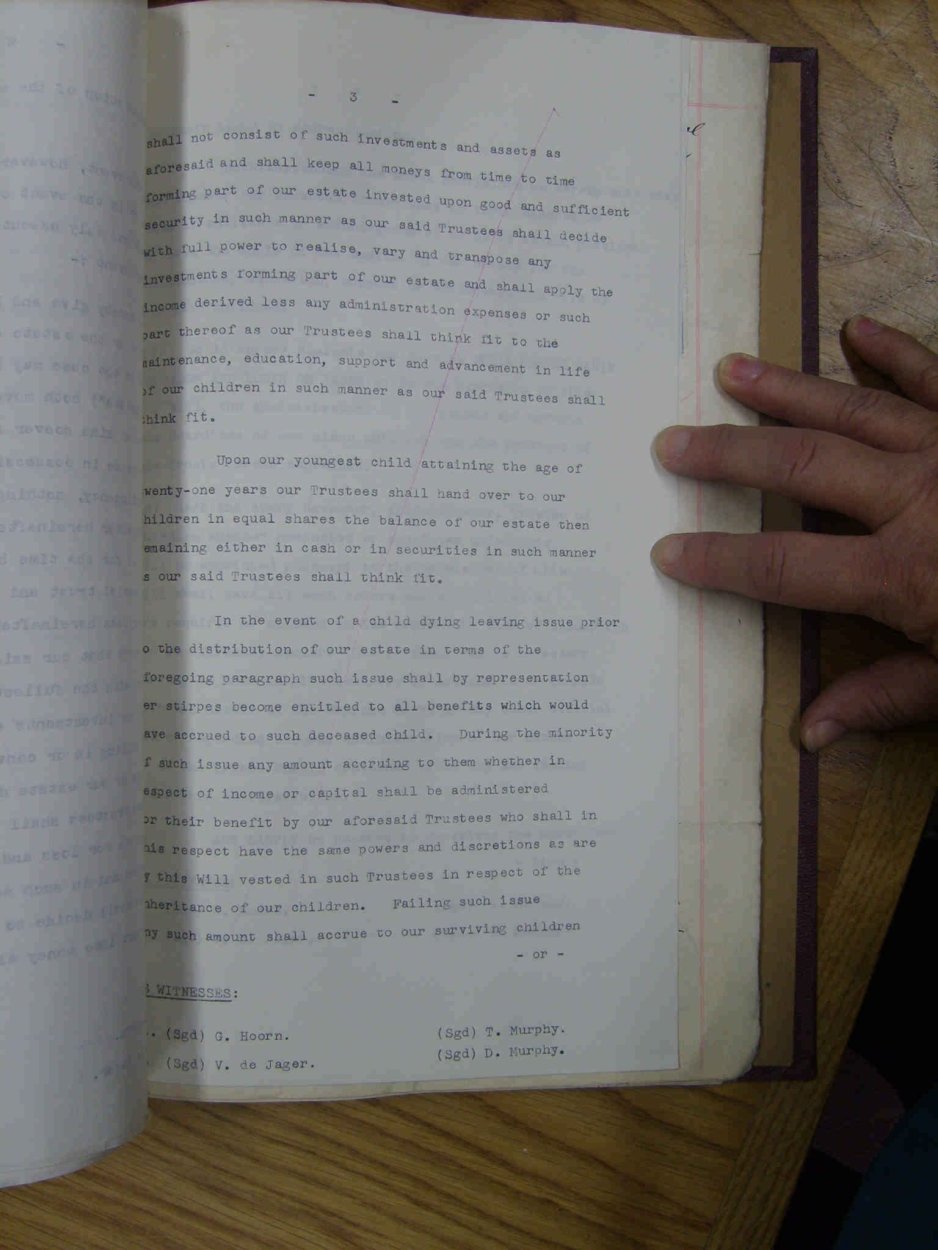 - 3 -
shall not consist of such investments and assets as
aforesaid and shall keep all moneys from time to time
forming part of our estate invested upon good and sufficient
security in such manner as our said Trustees shall decide
with full power to realise, vary and transpose any
investments forming part of our estate and shall apply the
income derived less any administration expenses or such
part thereof as our Trustees shall think fit to the
maintenance, education, support and advancement in life
of our children in such manner as our said Trustees shall
think fit.
Upon our youngest child attaining the age of
wenty-one years our Trustees shall hand over to our
hildren in equal shares the balance of our estate then
emaining either in cash or in securities in such manner
s our said Trustees shall think fit.
In the event of a child dying leaving issue prior
o the distribution of our estate in terms of the
foregoing paragraph such issue shall by representation
er stirpes become entitled to all benefits which would
ave accrued to such deceased child. During the minority
f such issue any amount accruing to them whether in
espect of income or capital shall be administered
or their benefit by our aforesaid Trustees who shall in
his respect have the same powers and discretions as are
y this Will vested in such Trustees in respect of the
nheritance of our children. Failing such issue
ny such amount shall accrue to our surviving children
- or -
S WITNESSES:
. (Sgd) G. Hoorn. (Sgd) T. Murphy.
(Sgd) V. de Jager. (Sgd) D. Murphy.